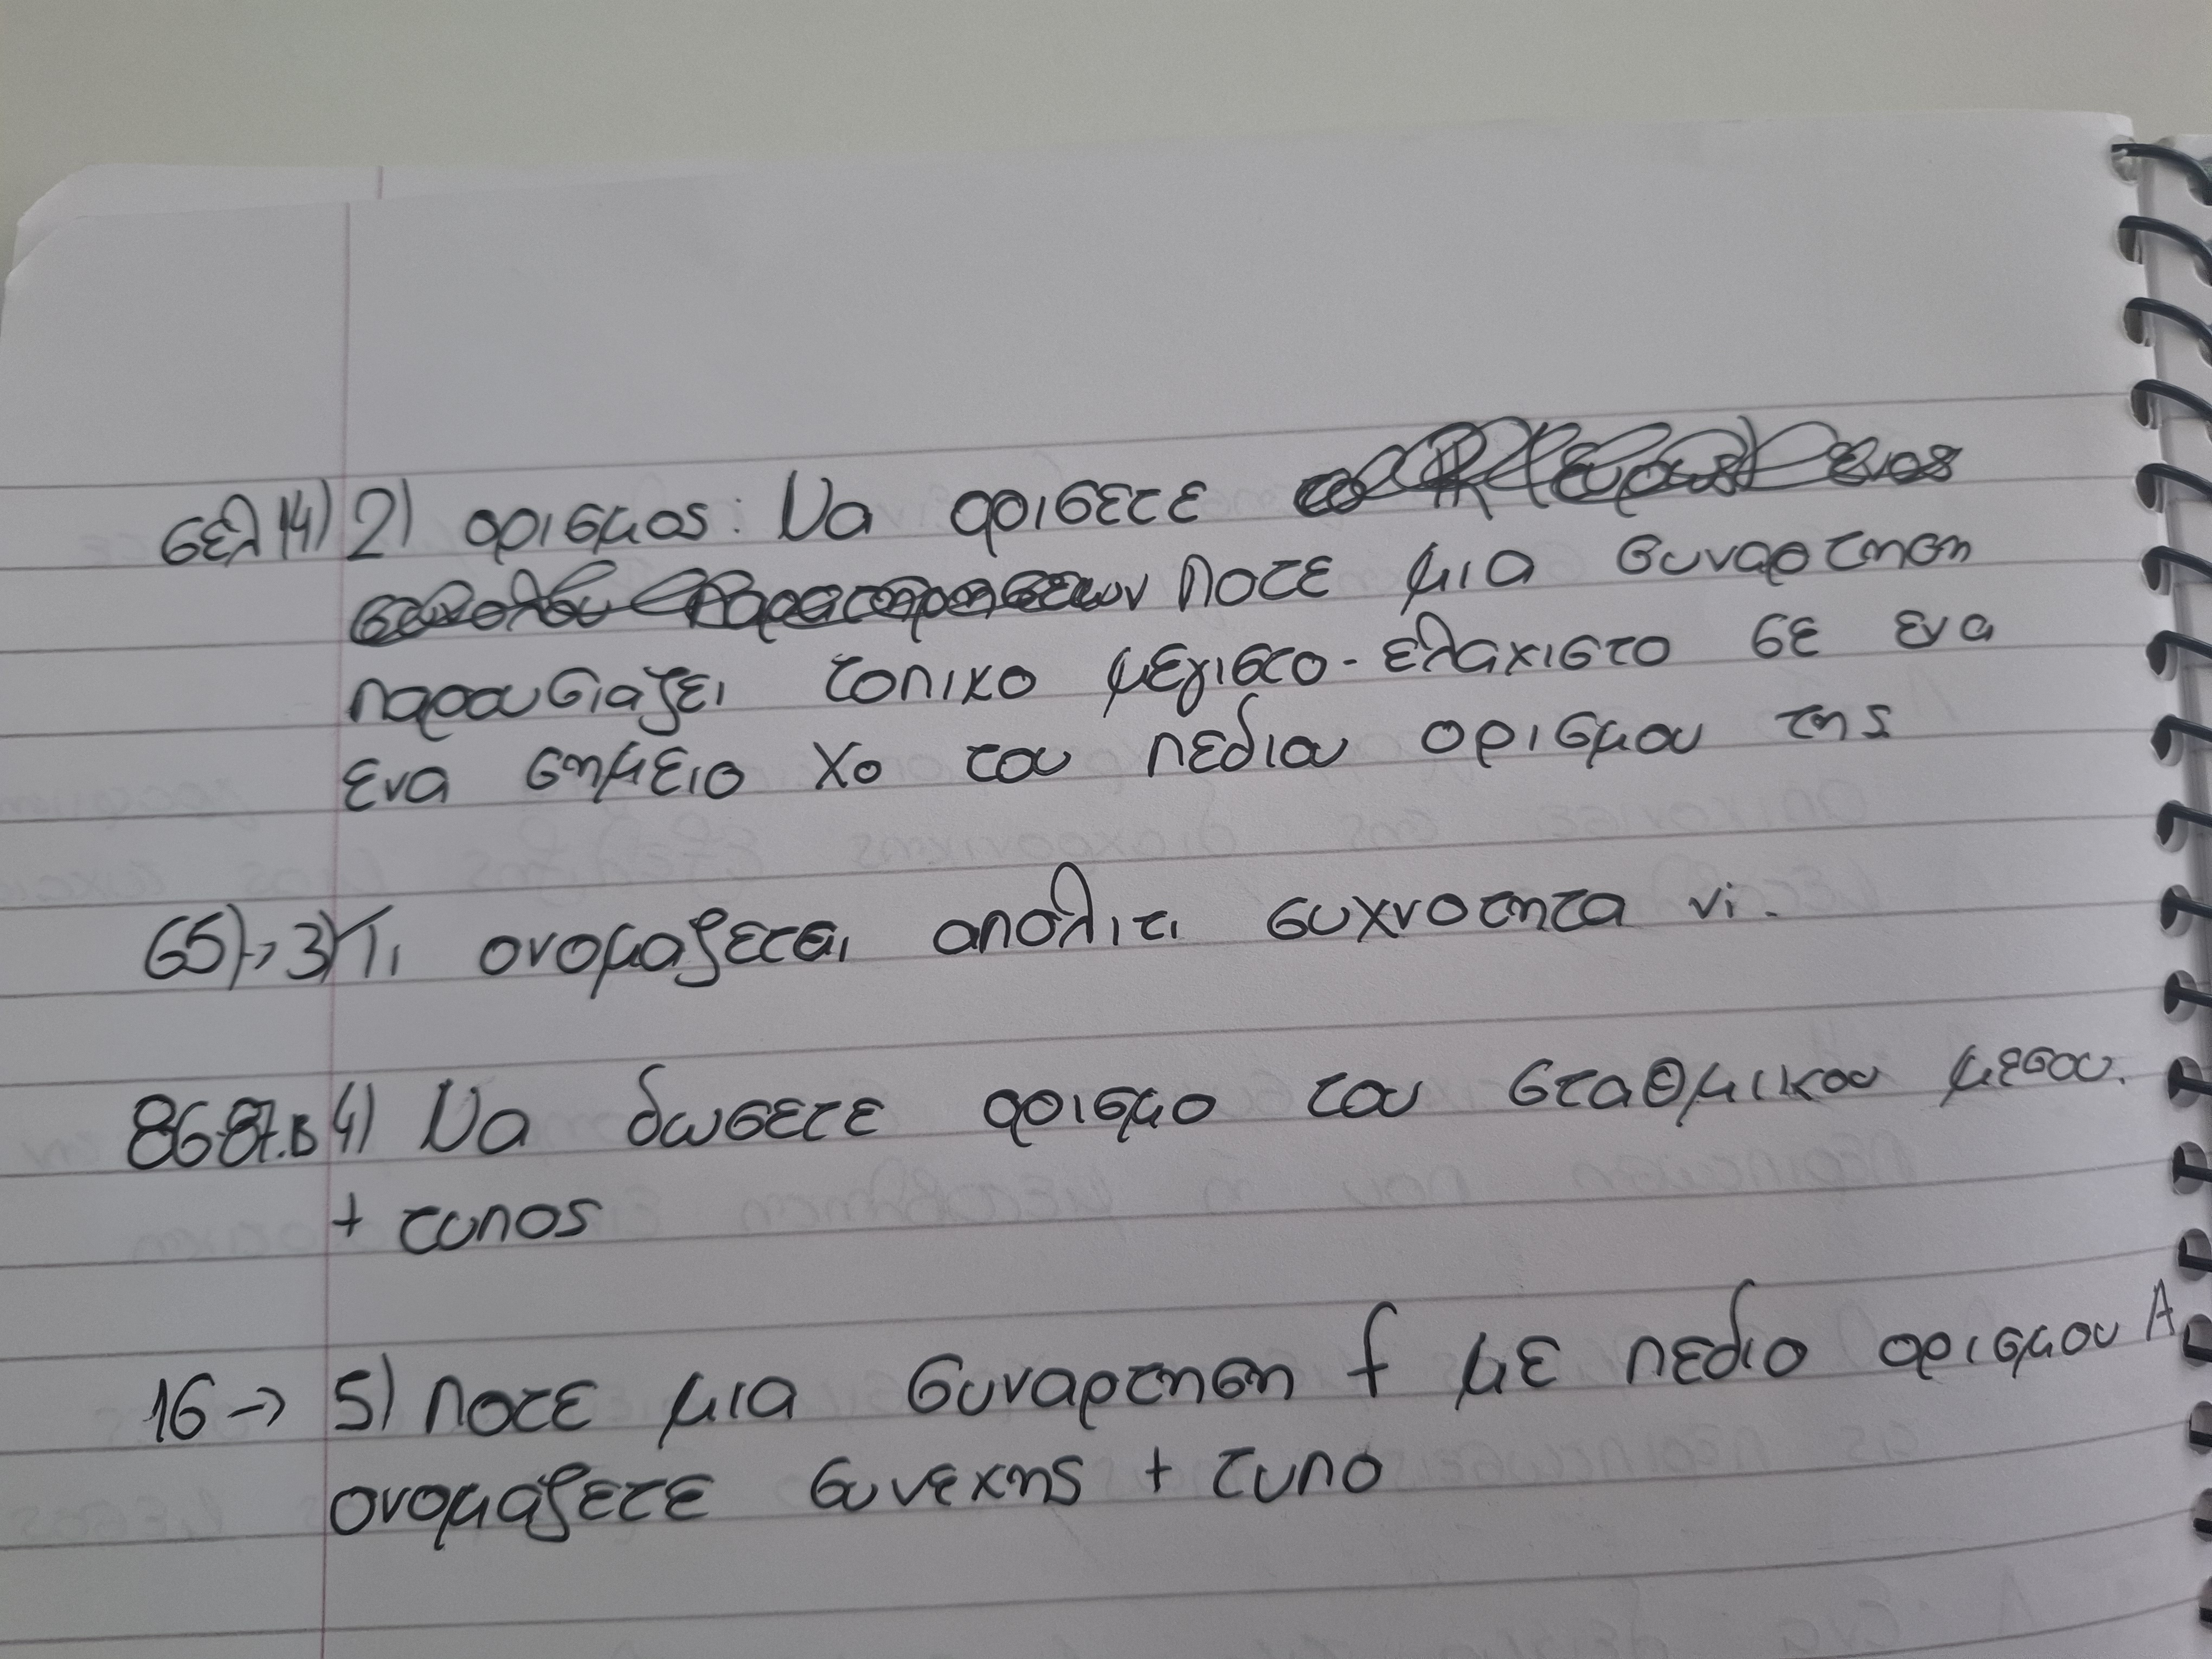 σελ 14) 2) ορισμος: Να ορισετε
ποτε μια συναρτηση
παρουσιαζει τοπικο μεγιστο - ελαχιστο σε ενα
ενα σημειο χο του πεδιου ορισμου της
65)→3) Τι ονομαζεται απολιτι συχνοτητα νi.
86-87.Β 4) Να δωσετε ορισμο του σταθμικου μεσου.
+ τυπος
16 → 5) ποτε μια συναρτηση f με πεδιο ορισμου Α
ονομάζετε συνεχης + τυπο